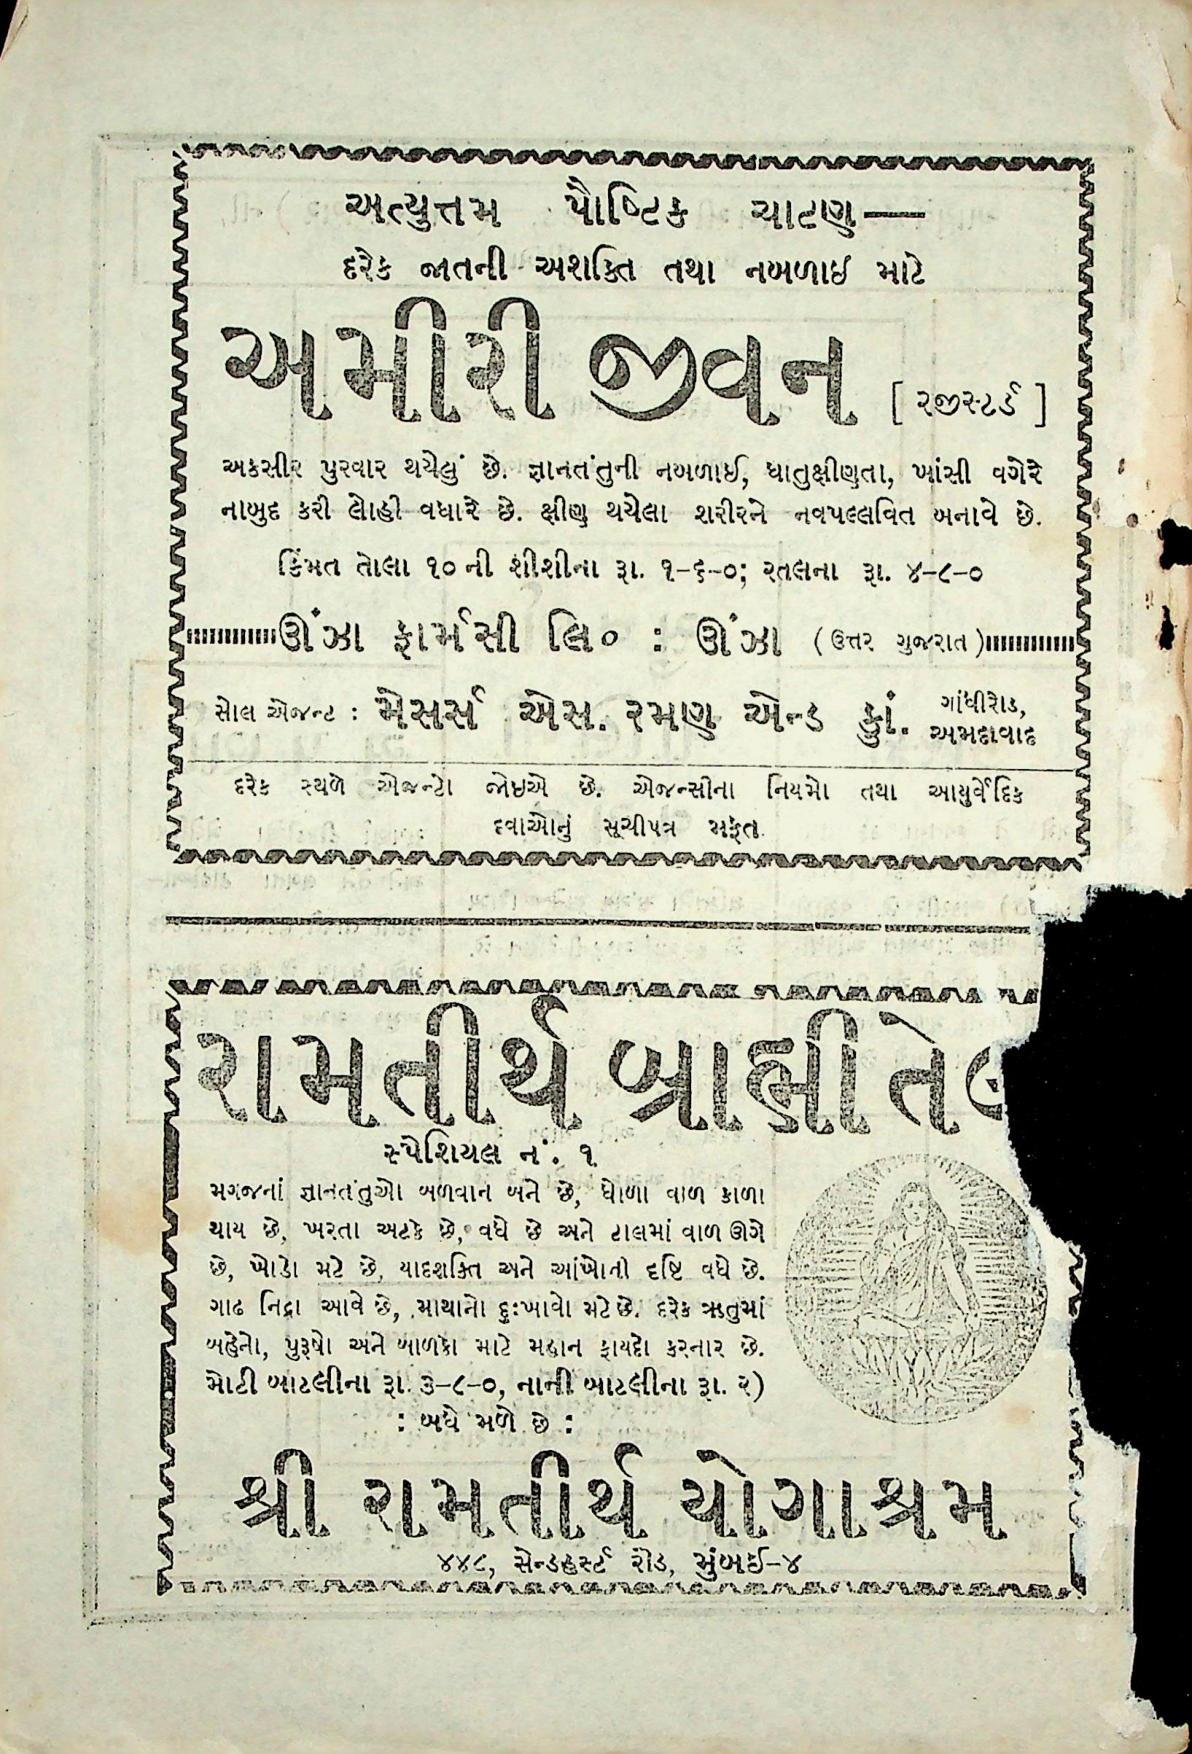 અત્યુત્તમ પૌષ્ટિક ચાટણ—
દરેક જાતની અશક્તિ તથા નબળાઇ માટે
અમીરી જીવન [ રજીસ્ટર્ડ ]
અકસીર પુરવાર થયેલું છે. જ્ઞાનતંતુની નબળાઈ, ધાતુક્ષીણતા, ખાંસી વગેરે
નાબુદ કરી લોહી વધારે છે. ક્ષીણ થયેલા શરીરને નવપલ્લવિત બનાવે છે.
કિંમત તોલા ૧૦ ની શીશીના રૂા. ૧-૬-૦; રતલના રૂા. ૪-૮-૦
ઊંઝા ફાર્મસી લિ૦ : ઊંઝા (ઉત્તર ગુજરાત)
સોલ એજન્ટ : મેસર્સ એસ. રમણ એન્ડ કાું. ગાંધીરોડ, અમદાવાદ
દરેક સ્થળે એજન્ટો જોઇએ છે. એજન્સીના નિયમો તથા આયુર્વેદિક
દવાઓનું સૂચીપત્ર મફત.
રામતીર્થ બ્રાહ્મી
સ્પેશિયલ નં. ૧
મગજનાં જ્ઞાનતંતુઓ બળવાન બને છે, ધોળા વાળ કાળા
થાય છે, ખરતા અટકે છે, વધે છે અને ટાલમાં વાળ ઊગે
છે, ખોડો મટે છે, યાદશક્તિ અને આંખોની દૃષ્ટિ વધે છે.
ગાઢ નિદ્રા આવે છે, માથાનો દુઃખાવો મટે છે. દરેક ઋતુમાં
બહેનો, પુરૂષો અને બાળકો માટે મહાન ફાયદો કરનાર છે.
મોટી બાટલીના રૂા. ૩-૮-૦, નાની બાટલીના રૂા. ૨)
: બધે મળે છે :
શ્રી રામતીર્થ યોગાશ્રમ
૪૪૮, સેન્ડહર્સ્ટ રોડ, મુંબઈ-૪